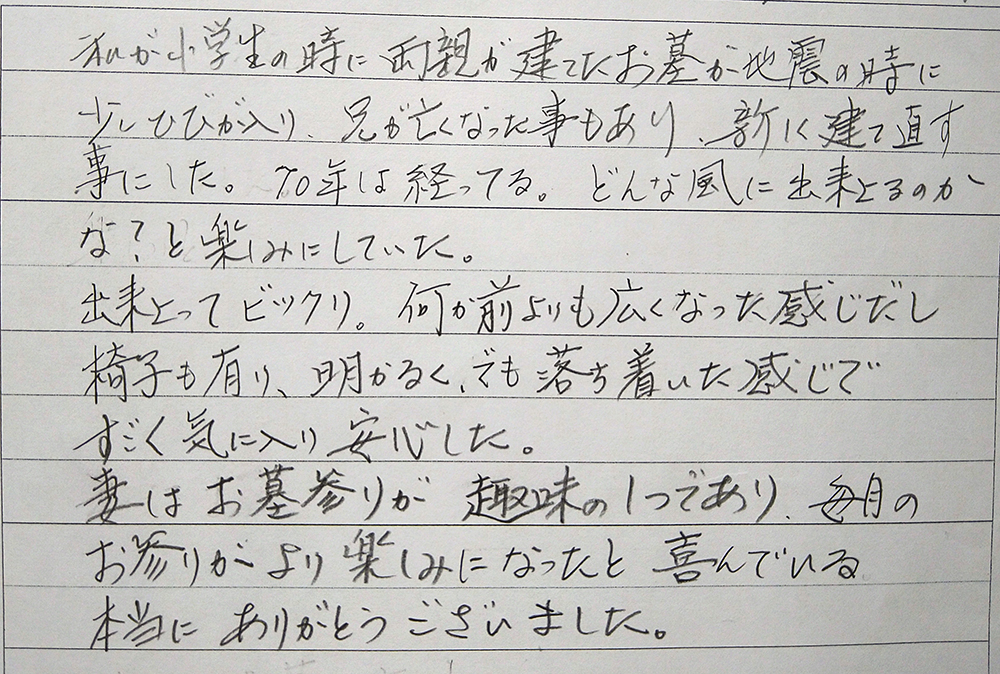 私が小学生の時に両親が建てたお墓が地震の時に
少しひびが入り、兄が亡くなった事もあり、新しく建て直す
事にした。70年は経ってる。どんな風に出来上るのか
な?と楽しみにしていた。
出来上ってビックリ。何か前よりも広くなった感じだし
椅子も有り、明かるく、でも落ち着いた感じで
すごく気に入り安心した。
妻はお墓参りが趣味の1つであり、毎月の
お参りがより楽しみになったと喜んでいる
本当にありがとうございました。